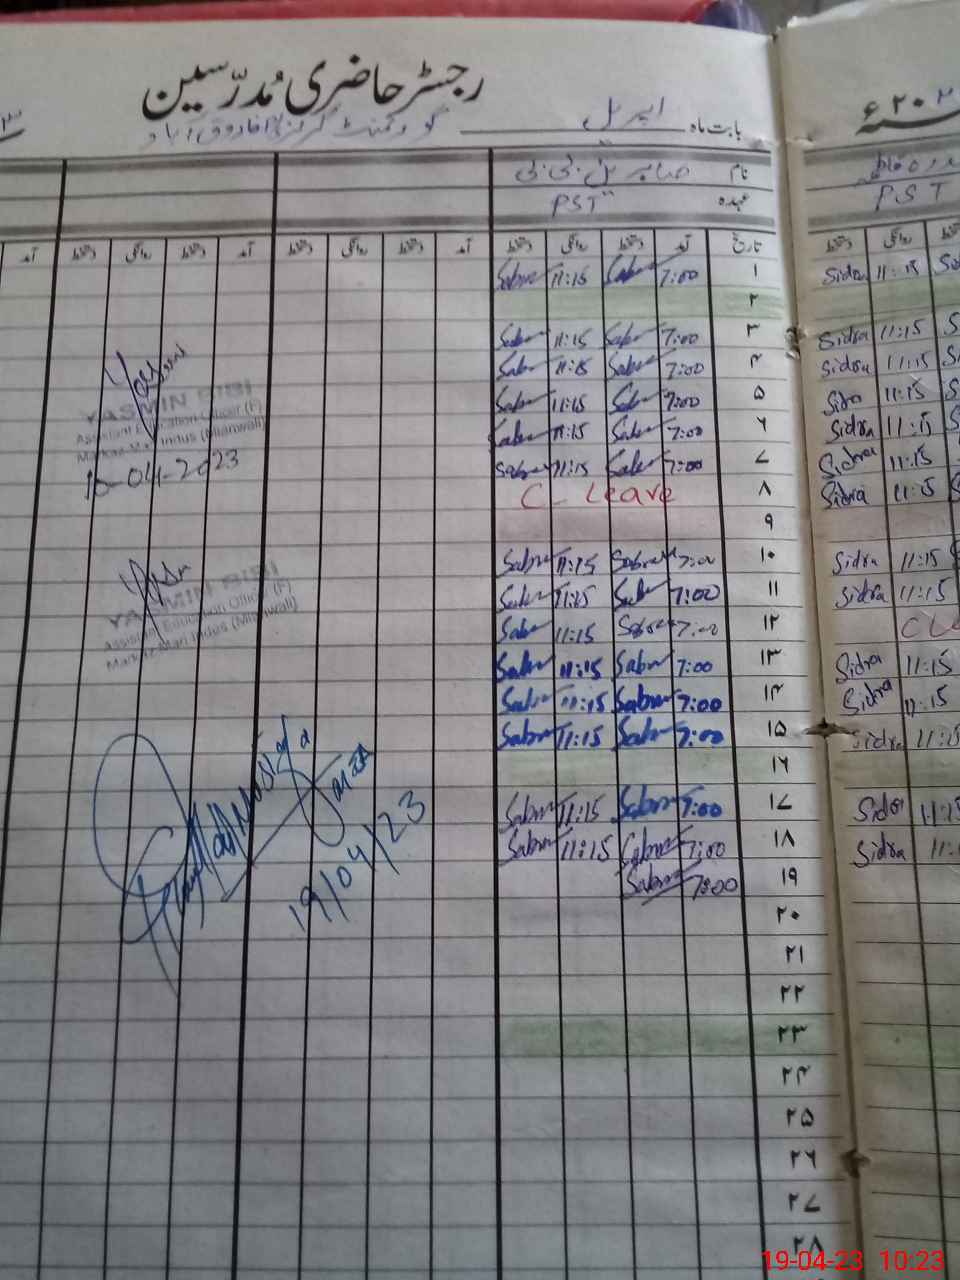 رجسٹر حاضری مُدرّسین
بابت ماہ اپریل گورنمنٹ گرلز
۲۰۲
نام صابرین بی بی
عہدہ PST PST
تاریخ آمد دستخط روانگی دستخط آمد دستخط روانگی دستخط آمد دستخط روانگی دستخط آمد
۱ 7:00 Sabr 11:15 Sabr Sidra 11:15
۲
۳ 7:00 Sabr 11:15 Sabr Sidra 11:15
۴ 7:00 Sabr 11:15 Sabr Sidra 11:15
۵ 7:00 Sabr 11:15 Sabr Sidra 11:15
۶ 7:00 Sabr 11:15 Sabr Sidra 11:15
۷ 7:00 Sabr 11:15 Sabr Sidra 11:15
۸ C- Leave Sidra 11:15
۹
۱۰ 7:00 Sabr 11:15 Sabr Sidra 11:15
۱۱ 7:00 Sabr 11:15 Sabr Sidra 11:15
۱۲ 7:00 Sabr 11:15 Sabr
۱۳ 7:00 Sabr 11:15 Sabr Sidra 11:15
۱۴ 7:00 Sabr 11:15 Sabr Sidra 11:15
۱۵ 7:00 Sabr 11:15 Sabr Sidra 11:15
۱۶
۱۷ 7:00 Sabr 11:15 Sabr Sidra 11:15
۱۸ 7:00 Sabr 11:15 Sabr Sidra
۱۹ 7:00 Sabr
۲۰
۲۱
۲۲
۲۳
۲۴
۲۵
۲۶
۲۷
۲۸
YASMIN BIBI
Assistant Education Officer (F)
Markaz Mari Indus (Mianwali)
10-04-2023
YASMIN BIBI
Assistant Education Officer (F)
Markaz Mari Indus (Mianwali)
19/04/23
19-04-23 10:23